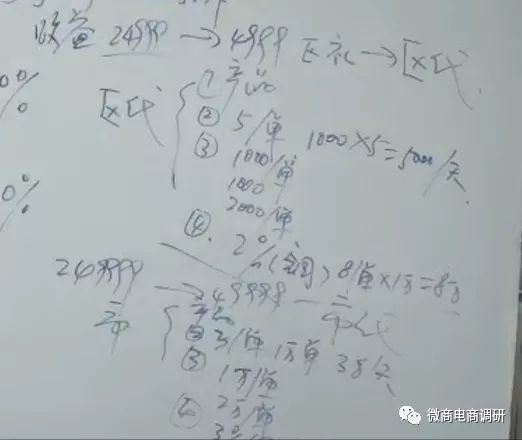 收益 24999 → 4999 区礼 → 区代
0%
区代
① 产品
② 5/单 1000×5=5000/天
③ 1000/单
1000/单
2000/单
0%
④ 2%(全国) 8/单×1万=8万
249999 → 49998 — 市代
市
产品
② 3/单 1万单 3万/天
③ 1万/单
2万/单
微商电商调研